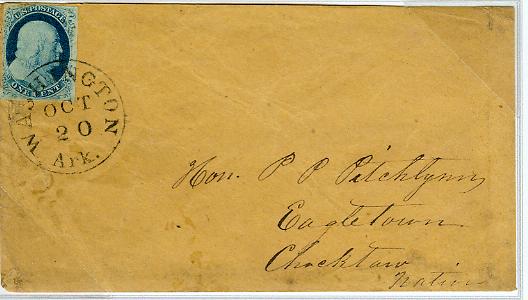 U.S. POSTAGE
ONE CENT
WASHINGTON
OCT
20
Ark.
Hon. P P Pitchlynn
Eagletown
Chocktaw
Nation